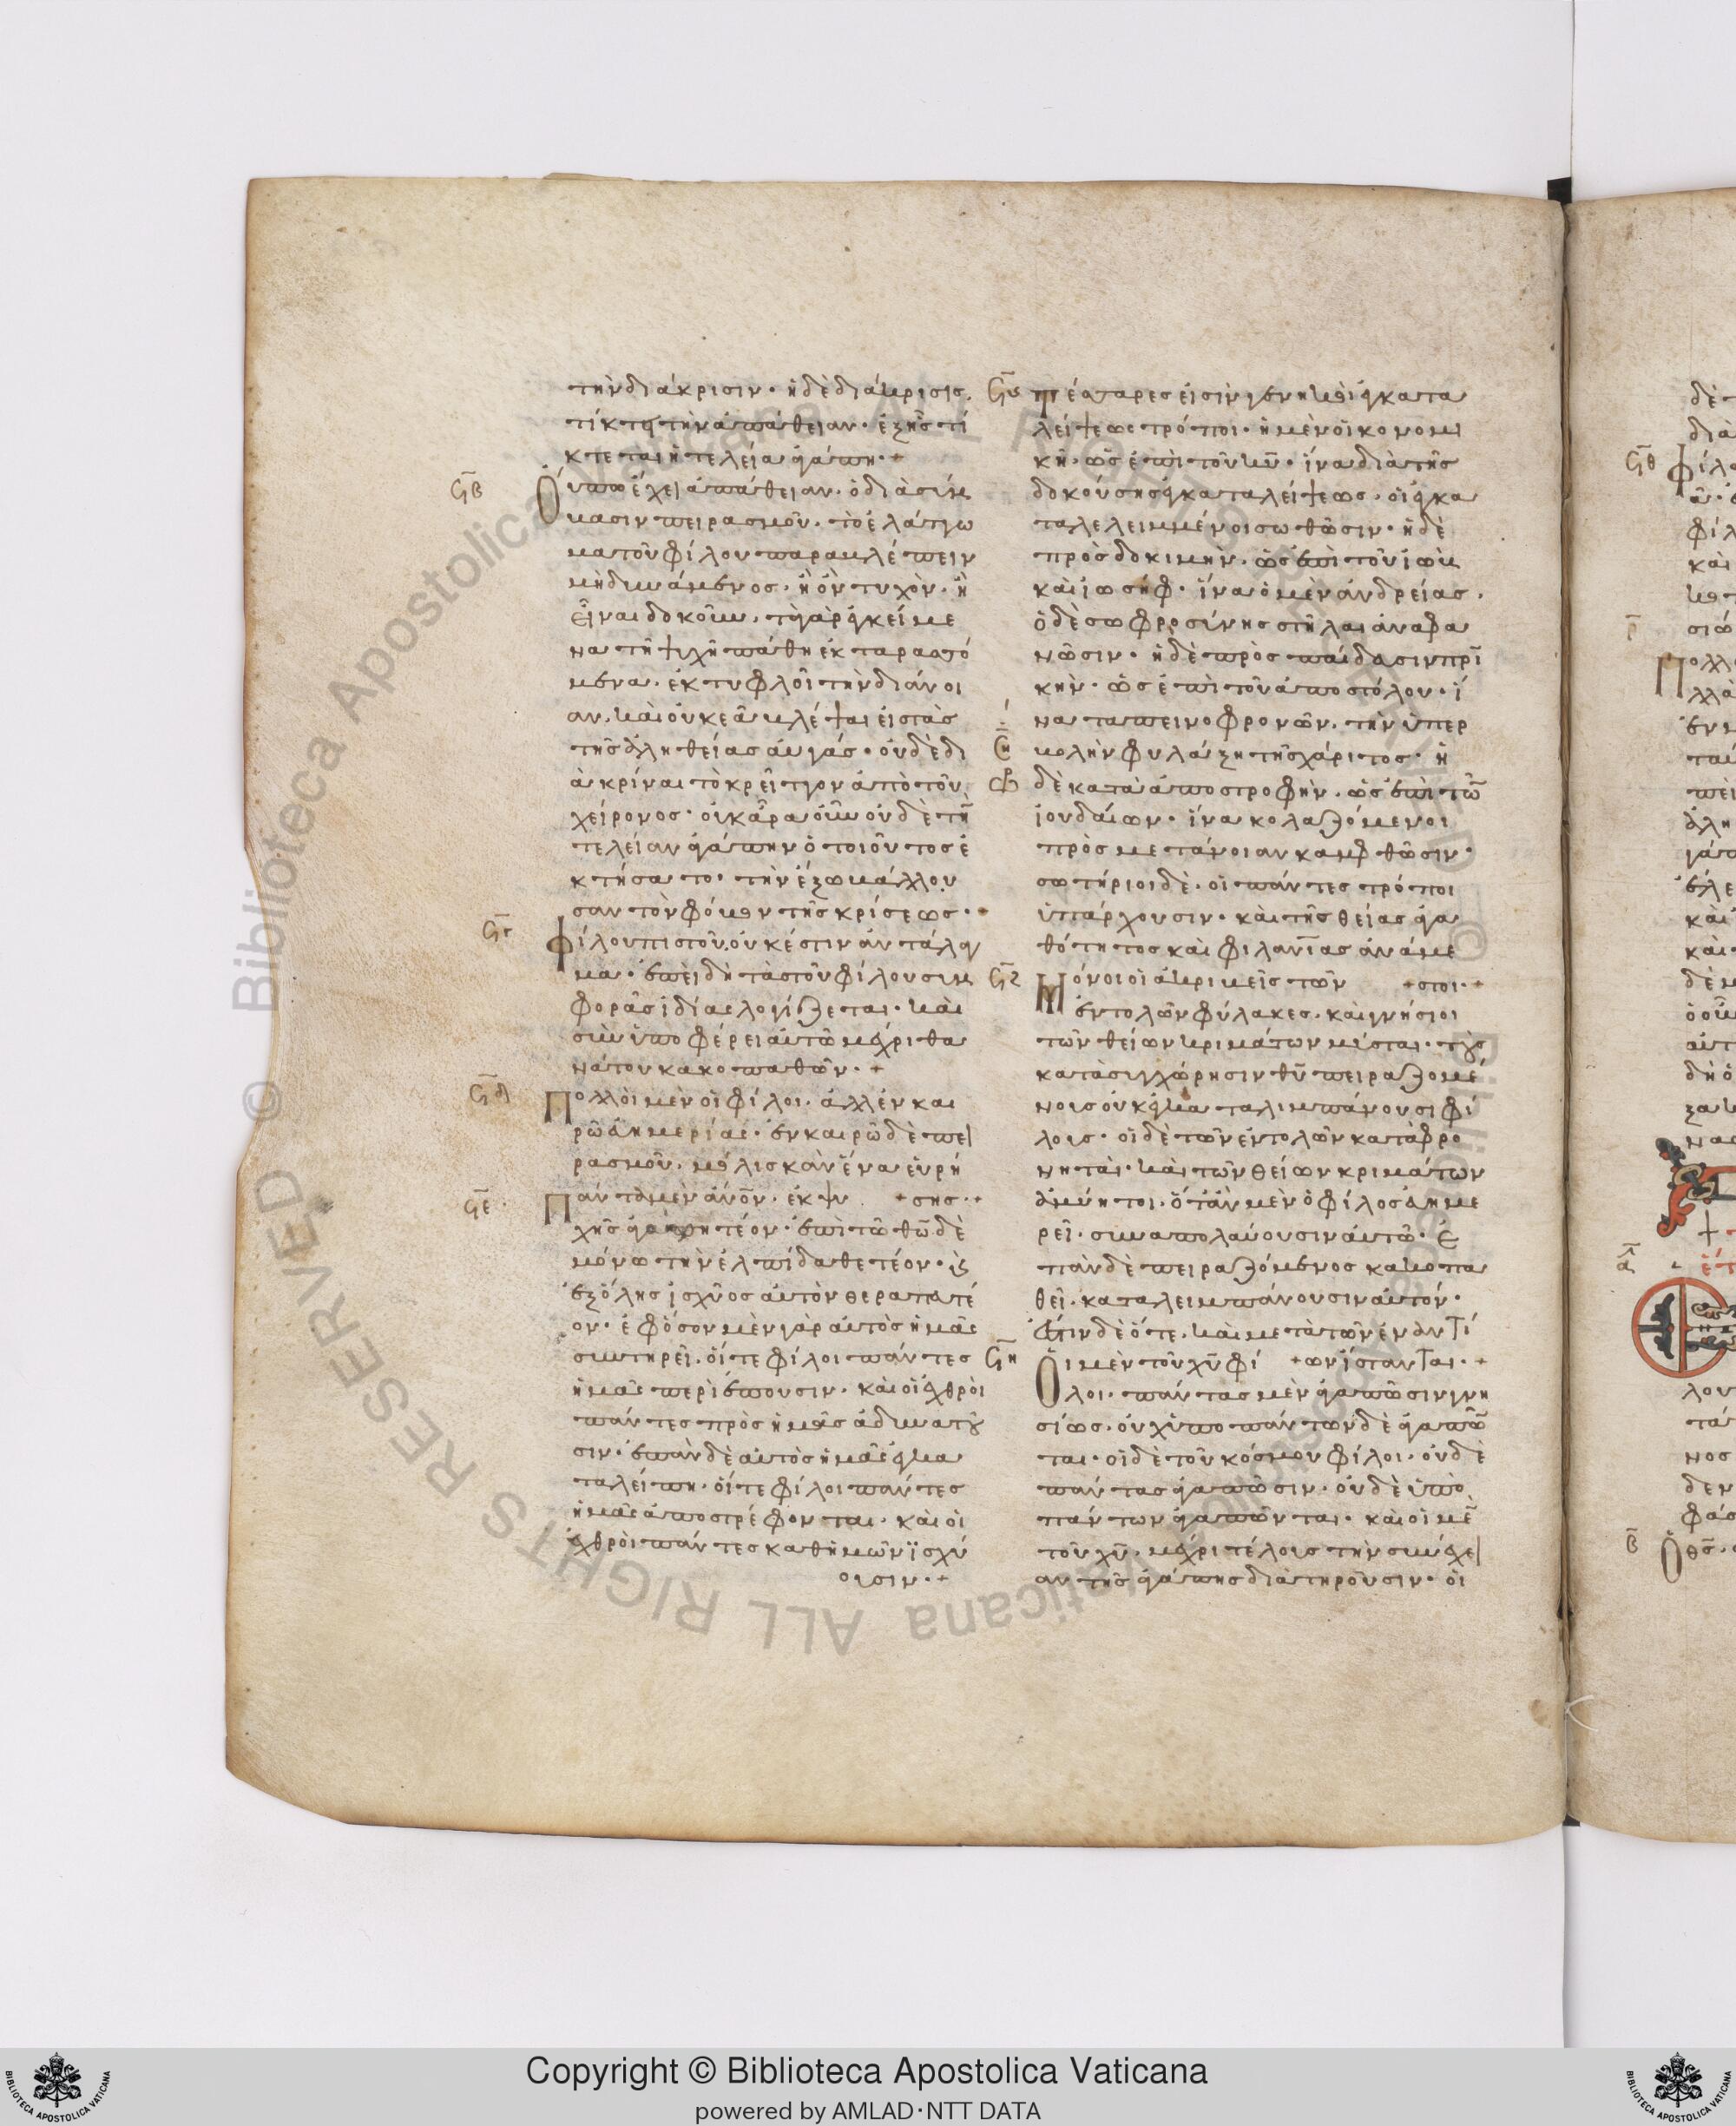 τὴν διάκρισιν· ἡ δὲ διάκρισις,
τίκτει τὴν ἀπάθειαν· ἐξ ἧς τί
κτεται ἡ τελεία ἀγάπη·+
ϥβ Οὔπω ἔχει ἀπάθειαν· ὁ διὰ σύμ
βασιν πειρασμοῦ, τὸ ἐλάττω
μα τοῦ φίλου παραβλέπειν
μὴ δυνάμενος· ἢ ὂν τυχὸν· ἢ
εἶναι δοκοῦν, τὰ γὰρ ἐγκείμε
να τῇ ψυχῇ πάθη ἐκταρασσό
μενα, ἐκτυφλοῖ τὴν διάνοι
αν, καὶ οὐκ ἐᾶ βλέψαι εἰς τὰς
τῆς ἀληθείας αὐγάς· οὐδὲ δι
ακρίναι τὸ κρεῖττον ἀπὸ τοῦ
χείρονος· οὐκ ἄρα οὖν οὐδὲ τὴν
τελείαν ἀγάπην ὁ τοιοῦτος ἐ
κτήσατο· τὴν ἔξω βάλλου
σαν τὸν φόβον τῆς κρίσεως·+
ϥγ Φίλου πιστοῦ οὐκ ἔστιν ἀντάλαγ
μα· ἐπειδὴ τὰς τοῦ φίλου συμ
φορὰς ἰδίας λογίζεται· καὶ
συνυποφέρει αὐτῶ μέχρι θα
νάτου κακοπαθῶν·+
ϥδ Πολλοὶ μὲν οἱ φίλοι· ἀλλ' ἐν και
ρῶ εὐημερίας· ἐν καιρῶ δὲ πει
ρασμοῦ, μόλις κἂν ἕνα εὑρή
+σῃς·+
ϥε Πάντα μὲν ἄνον· ἐκ ψυ
χῆς ἀγαπητέον· ἐπὶ τῶ θῶ δὲ
μόνω τὴν ἐλπίδα θετέον· κ
ἐξ ὅλης ἰσχύος αὐτὸν θεραπευτέ
ον· ἐφ' ὅσον μὲν γὰρ αὐτὸς ἡμᾶς
συντηρεῖ· οἵ τε φίλοι πάντες
ἡμᾶς περιέπουσιν· καὶ οἱ ἐχθροὶ
πάντες πρὸς ἡμᾶς ἀδυνατοῦ
σιν· ἐπὰν δὲ αὐτὸς ἡμᾶς ἐγκα
ταλείπη· οἵ τε φίλοι πάντες
ἡμᾶς ἀποστρέφονται· καὶ οἱ
ἐχθροὶ πάντες καθ' ἡμῶν ἰσχύ
ουσιν·+
ϥς Τέσσαρες εἰσὶ γενικοὶ ἐγκατα
λείψεως τρόποι· ἡ μὲν οἰκονομι
κὴ· ὡς ἐπὶ τοῦ κυ· ἵνα διὰ τῆς
δοκούσης ἐγκαταλείψεως· οἱ ἐγκα
ταλελειμμένοι σωθῶσιν· ἡ δὲ
πρὸς δοκιμὴν· ὡς ἐπὶ τοῦ ἰὼβ
καὶ ἰωσήφ· ἵνα ὁ μὲν ἀνδρείας,
ὁ δὲ σωφροσύνης στῆλαι ἀναφα
νῶσιν· ἡ δὲ πρὸς παίδευσιν πρι
κὴν· ὡς ἐπὶ τοῦ ἀποστόλου· ἵ
να ταπεινοφρονῶν, τὴν ὑπερ
βολὴν φυλάξη τῆς χάριτος· ἡ
δὲ κατὰ ἀποστροφὴν· ὡς ἐπὶ τῶν
ἰουδαίων· ἵνα κολαζόμενοι
πρὸς μετάνοιαν καμφθῶσιν·
σωτήριοι δὲ, οἱ πάντες τρόποι
ὑπάρχουσιν· καὶ τῆς θείας ἀγα
θότητος καὶ φιλανίας ἀνάμε
+στοι·+
ϥζ Μόνοι οἱ ἀκριβεῖς τῶν
ἐντολῶν φύλακες, καὶ γνήσιοι
τῶν θείων κριμάτων μύσται· τοὺς
κατὰ συγχώρησιν θυ πειραζομέ
νους οὐκ ἐγκαταλιμπάνουσι φί
λους· οἱ δὲ τῶν ἐντολῶν καταφρο
νηταὶ· καὶ τῶν θείων κριμάτων
ἀμύητοι· ὅταν μὲν ὁ φίλος εὐημε
ρεῖ· συναπολαύουσιν αὐτῶ· ἐ
πὰν δὲ πειραζόμενος κακοπα
θεῖ· καταλειμπάνουσιν αὐτόν·
ἔστιν δὲ ὅτε, καὶ μετὰ τῶν ἐναντί
+ων ἵστανται·+
ϥη Οἱ μὲν τοῦ χυ φί
λοι· πάντας μὲν ἀγαπῶσιν γνη
σίως· οὐχ ὑπὸ πάντων δὲ ἀγαπῶν
ται· οἱ δὲ τοῦ κόσμου φίλοι· οὐδὲ
πάντας ἀγαπῶσιν· οὐδὲ ὑπὸ
πάντων ἀγαπῶνται· καὶ οἱ μὲν
τοῦ χυ, μέχρι τέλους τὴν συνέχει
αν τῆς ἀγάπης διατηροῦσιν· οἱ
Copyright © Biblioteca Apostolica Vaticana
powered by AMLAD·NTT DATA